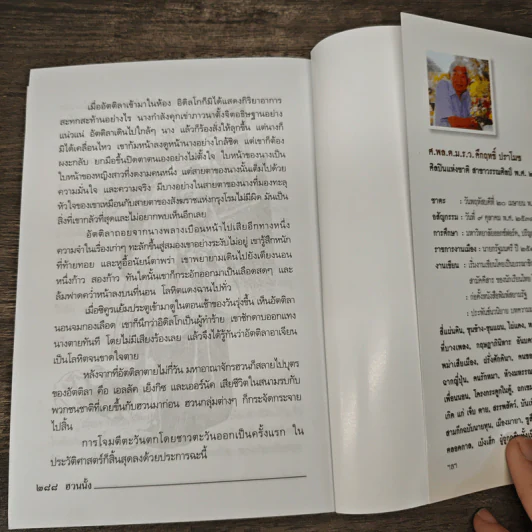 เมื่ออัตติลาเข้ามาในห้อง อิติลโกก็มิได้แสดงกิริยาอาการ
สะทกสะท้านอย่างไร นางกำลังคุกเข่าภาวนาตั้งจิตอธิษฐานอย่าง
แน่วแน่ อัตติลาเดินไปใกล้ๆ นาง แล้วก็ร้องสั่งให้ลุกขึ้น แต่นางก็
มิได้เคลื่อนไหว เขาก้มหน้าลงดูหน้านางอย่างใกล้ชิด แต่เขาก็ต้อง
ผงะกลับ ยกมือขึ้นปิดตาตนเองอย่างไม่ตั้งใจ ใบหน้าของนางเป็น
ใบหน้าของหญิงสาวที่งดงามคนหนึ่ง แต่สายตาของนางนั้นเต็มไปด้วย
ความมั่นใจ และความจริง มีบางอย่างในสายตาของนางที่มองทะลุ
หัวใจของเขาเหมือนกับสายตาของสังฆราชแห่งกรุงโรมไม่มีผิด มันเป็น
สิ่งที่เขากลัวที่สุดและไม่อยากพบเห็นอีกเลย
อัตติลาถอยจากนางพลางเบือนหน้าไปเสียอีกทางหนึ่ง
ความจำในเรื่องเก่าๆ ทะลักขึ้นสู่สมองเขาอย่างระงับไม่อยู่ เขารู้สึกหนัก
ที่ท้ายทอย และหูอื้อนัยน์ตาพร่า เขาพยายามเดินไปยังเตียงนอน
หนึ่งก้าว สองก้าว ทันใดนั้นเขาก็กระอักออกมาเป็นเลือดสดๆ และ
ล้มฟาดคว่ำหน้าลงบนที่นอน โลหิตแดงฉานไปทั่ว
เมื่อซิตูวนเย้มประตูเข้ามาดูในตอนเช้าของวันรุ่งขึ้น เห็นอัตติลา
นอนจมกองเลือด เขาก็นึกว่าอิติลโกเป็นผู้ทำร้าย เขาชักดาบออกแทง
นางตายทันที โดยไม่มีเสียงร้องเลย แล้วจึงได้รู้กันว่าอัตติลาอาเจียน
เป็นโลหิตจนขาดใจตาย
หลังจากที่อัตติลาตายไม่กี่วัน มหาอาณาจักรฮวนก็สลายไปบุตร
ของอัตติลา คือ เอลลัค เย็งกิซ และเออร์นัค เสียชีวิตในสนามรบกับ
พวกชนชาติที่เคยขึ้นกับฮวนมาก่อน ฮวนกลุ่มต่างๆ ก็กระจัดกระจาย
ไปสิ้น
การโจมตีตะวันตกโดยชาวตะวันออกเป็นครั้งแรก ใน
ประวัติศาสตร์ก็สิ้นสุดลงด้วยประการฉะนี้
๒๘๘ ฮวนนั้ง
ศ.พล.ต.ม.ร.ว. คึกฤทธิ์ ปราโมช
ศิลปินแห่งชาติ สาขาวรรณศิลป์ พ.ศ.
ชาตะ : วันพฤหัสบดีที่ ๒๐ เมษายน
อสัญกรรม : วันที่ ๙ ตุลาคม พ.ศ.
การศึกษา : มหาวิทยาลัยออกซฟอร์ด
ราชการงานเมือง : นายกรัฐมนตรี
งานเขียน :
สี่แผ่นดิน, ขุนช้าง-ขุนแผน, ไผ่แดง